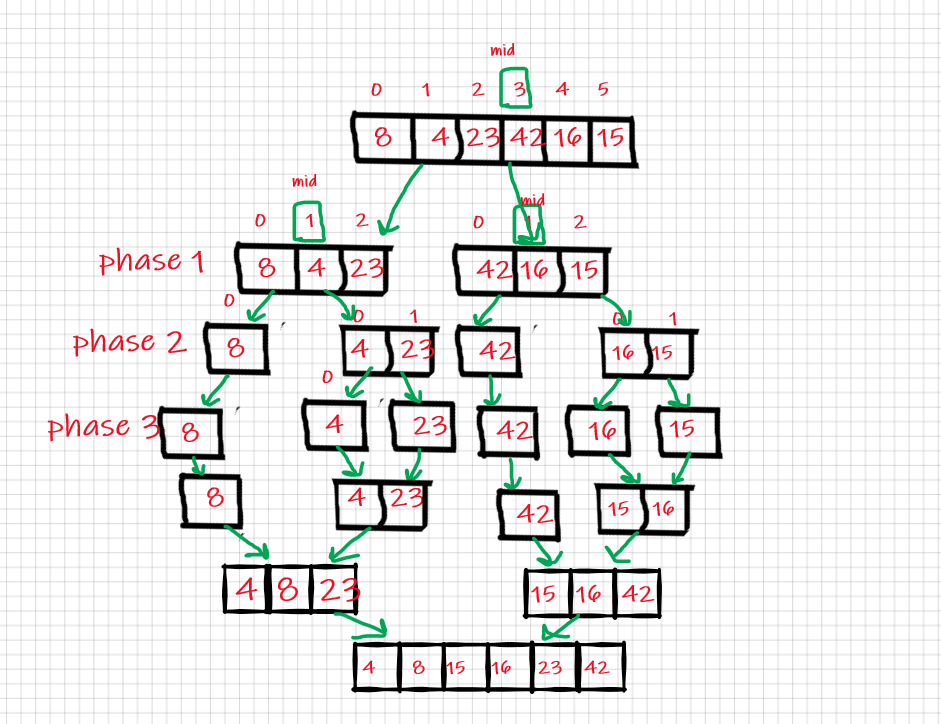 mid
0 1 2 3 4 5
8 4 23 42 16 15
mid mid
0 1 2 0 1 2
phase 1 8 4 23 42 16 15
0 0 1 0 1
phase 2 8 4 23 42 16 15
0
phase 3 8 4 23 42 16 15
8 4 23 42 15 16
4 8 23 15 16 42
4 8 15 16 23 42